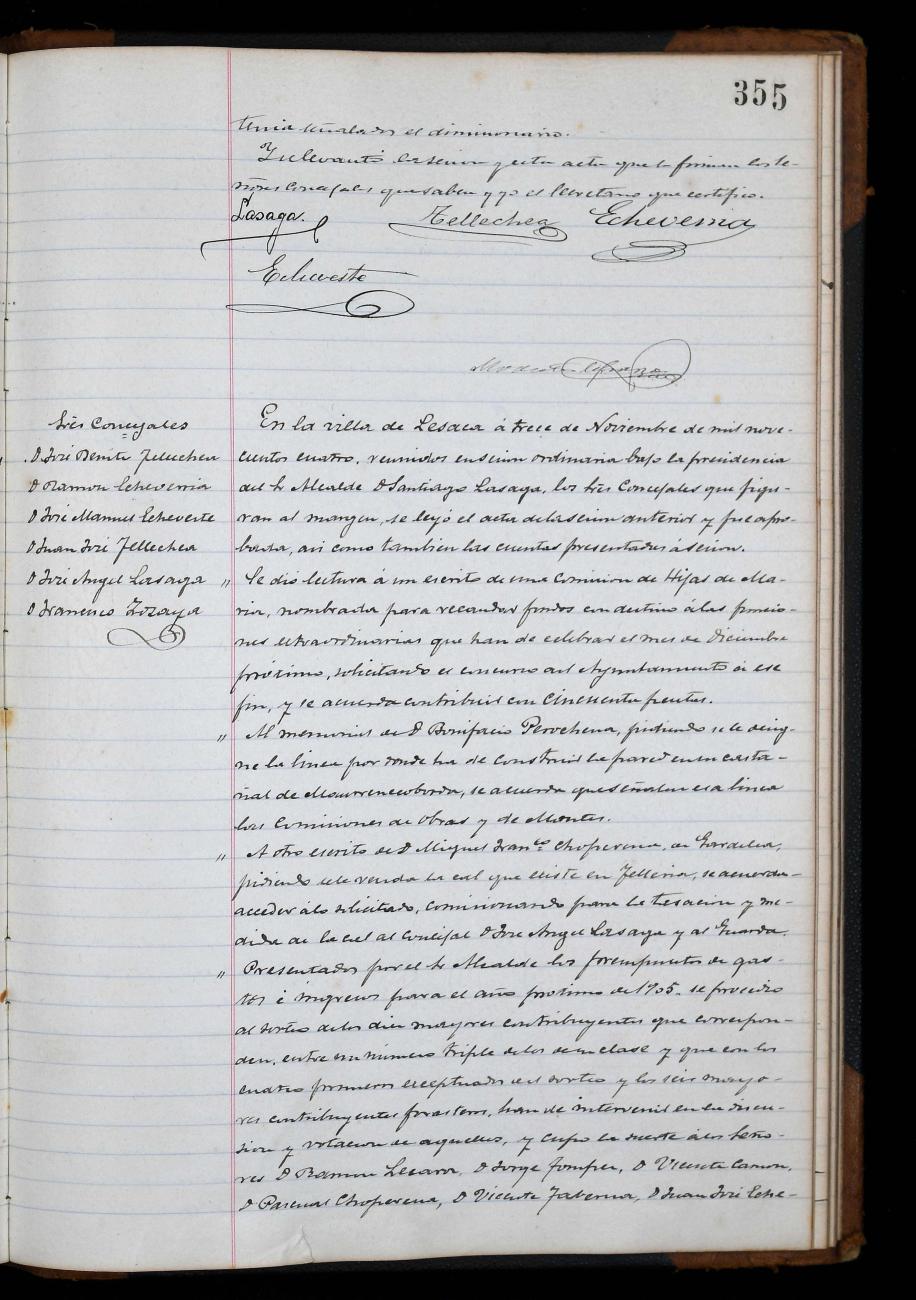 355
tenia señalados el dimisionario.
Y se levantó la sesion y esta acta que la firman los se-
ñores Concejales que saben y yo el Secretario que certifico.
Lasaga. Tellechea Echeverria
Echeveste
Sres Concejales
D José Benito Tellechea
D Ramon Echeverria
D José Manuel Echeveste
D Juan José Tellechea
D José Angel Lasaga
D Francisco Zozaya
En la villa de Lesaca á trece de Noviembre de mil nove-
cientos cuatro, reunidos en sesion ordinaria bajo la presidencia
del Sr Alcalde D Santiago Lasaga, los Sres Concejales que figu-
ran al margen, se leyó el acta de la sesion anterior y fue apro-
bada, asi como tambien las cuentas presentadas á sesion.
" Se dió lectura á un escrito de una Comision de Hijas de Ma-
ria, nombrada para recaudar fondos con destino á las funcio-
nes extraordinarias que han de celebrar el mes de Diciembre
próximo, solicitando el concurso del Ayuntamiento á ese
fin, y se acuerda contribuir con cincuenta pesetas.
" Al memorial de D Bonifacio Perochena, pidiendo se le desig-
ne la linea por donde ha de construir la pared en su casta-
ñal de , se acuerda que señalen esa linea
las Comisiones de Obras y de Montes.
" A otro escrito de D Miguel Franco Choperena, de Gardelea,
pidiendo se le venda la cal que existe en , se acuerda
acceder á lo solicitado, comisionando para la tasacion y me-
dida de la cal al Concejal D José Angel Lasaga y al Guarda.
" Presentados por el Sr Alcalde los presupuestos de gas-
tos é ingresos para el año próximo de 1905, se procedió
al sorteo de los diez mayores contribuyentes que correspon-
den, entre un número triple de los de su clase y que con los
cuatro primeros exceptuados del sorteo y los seis mayo-
res contribuyentes forasteros, han de intervenir en la discu-
sion y votacion de aquellos, y cupo la suerte á los Seño-
res D Ramon Lecaroz, D Jorge , D Vicente Camon,
D Pascual Choperena, D Vicente Taberna, D Juan José Eche-